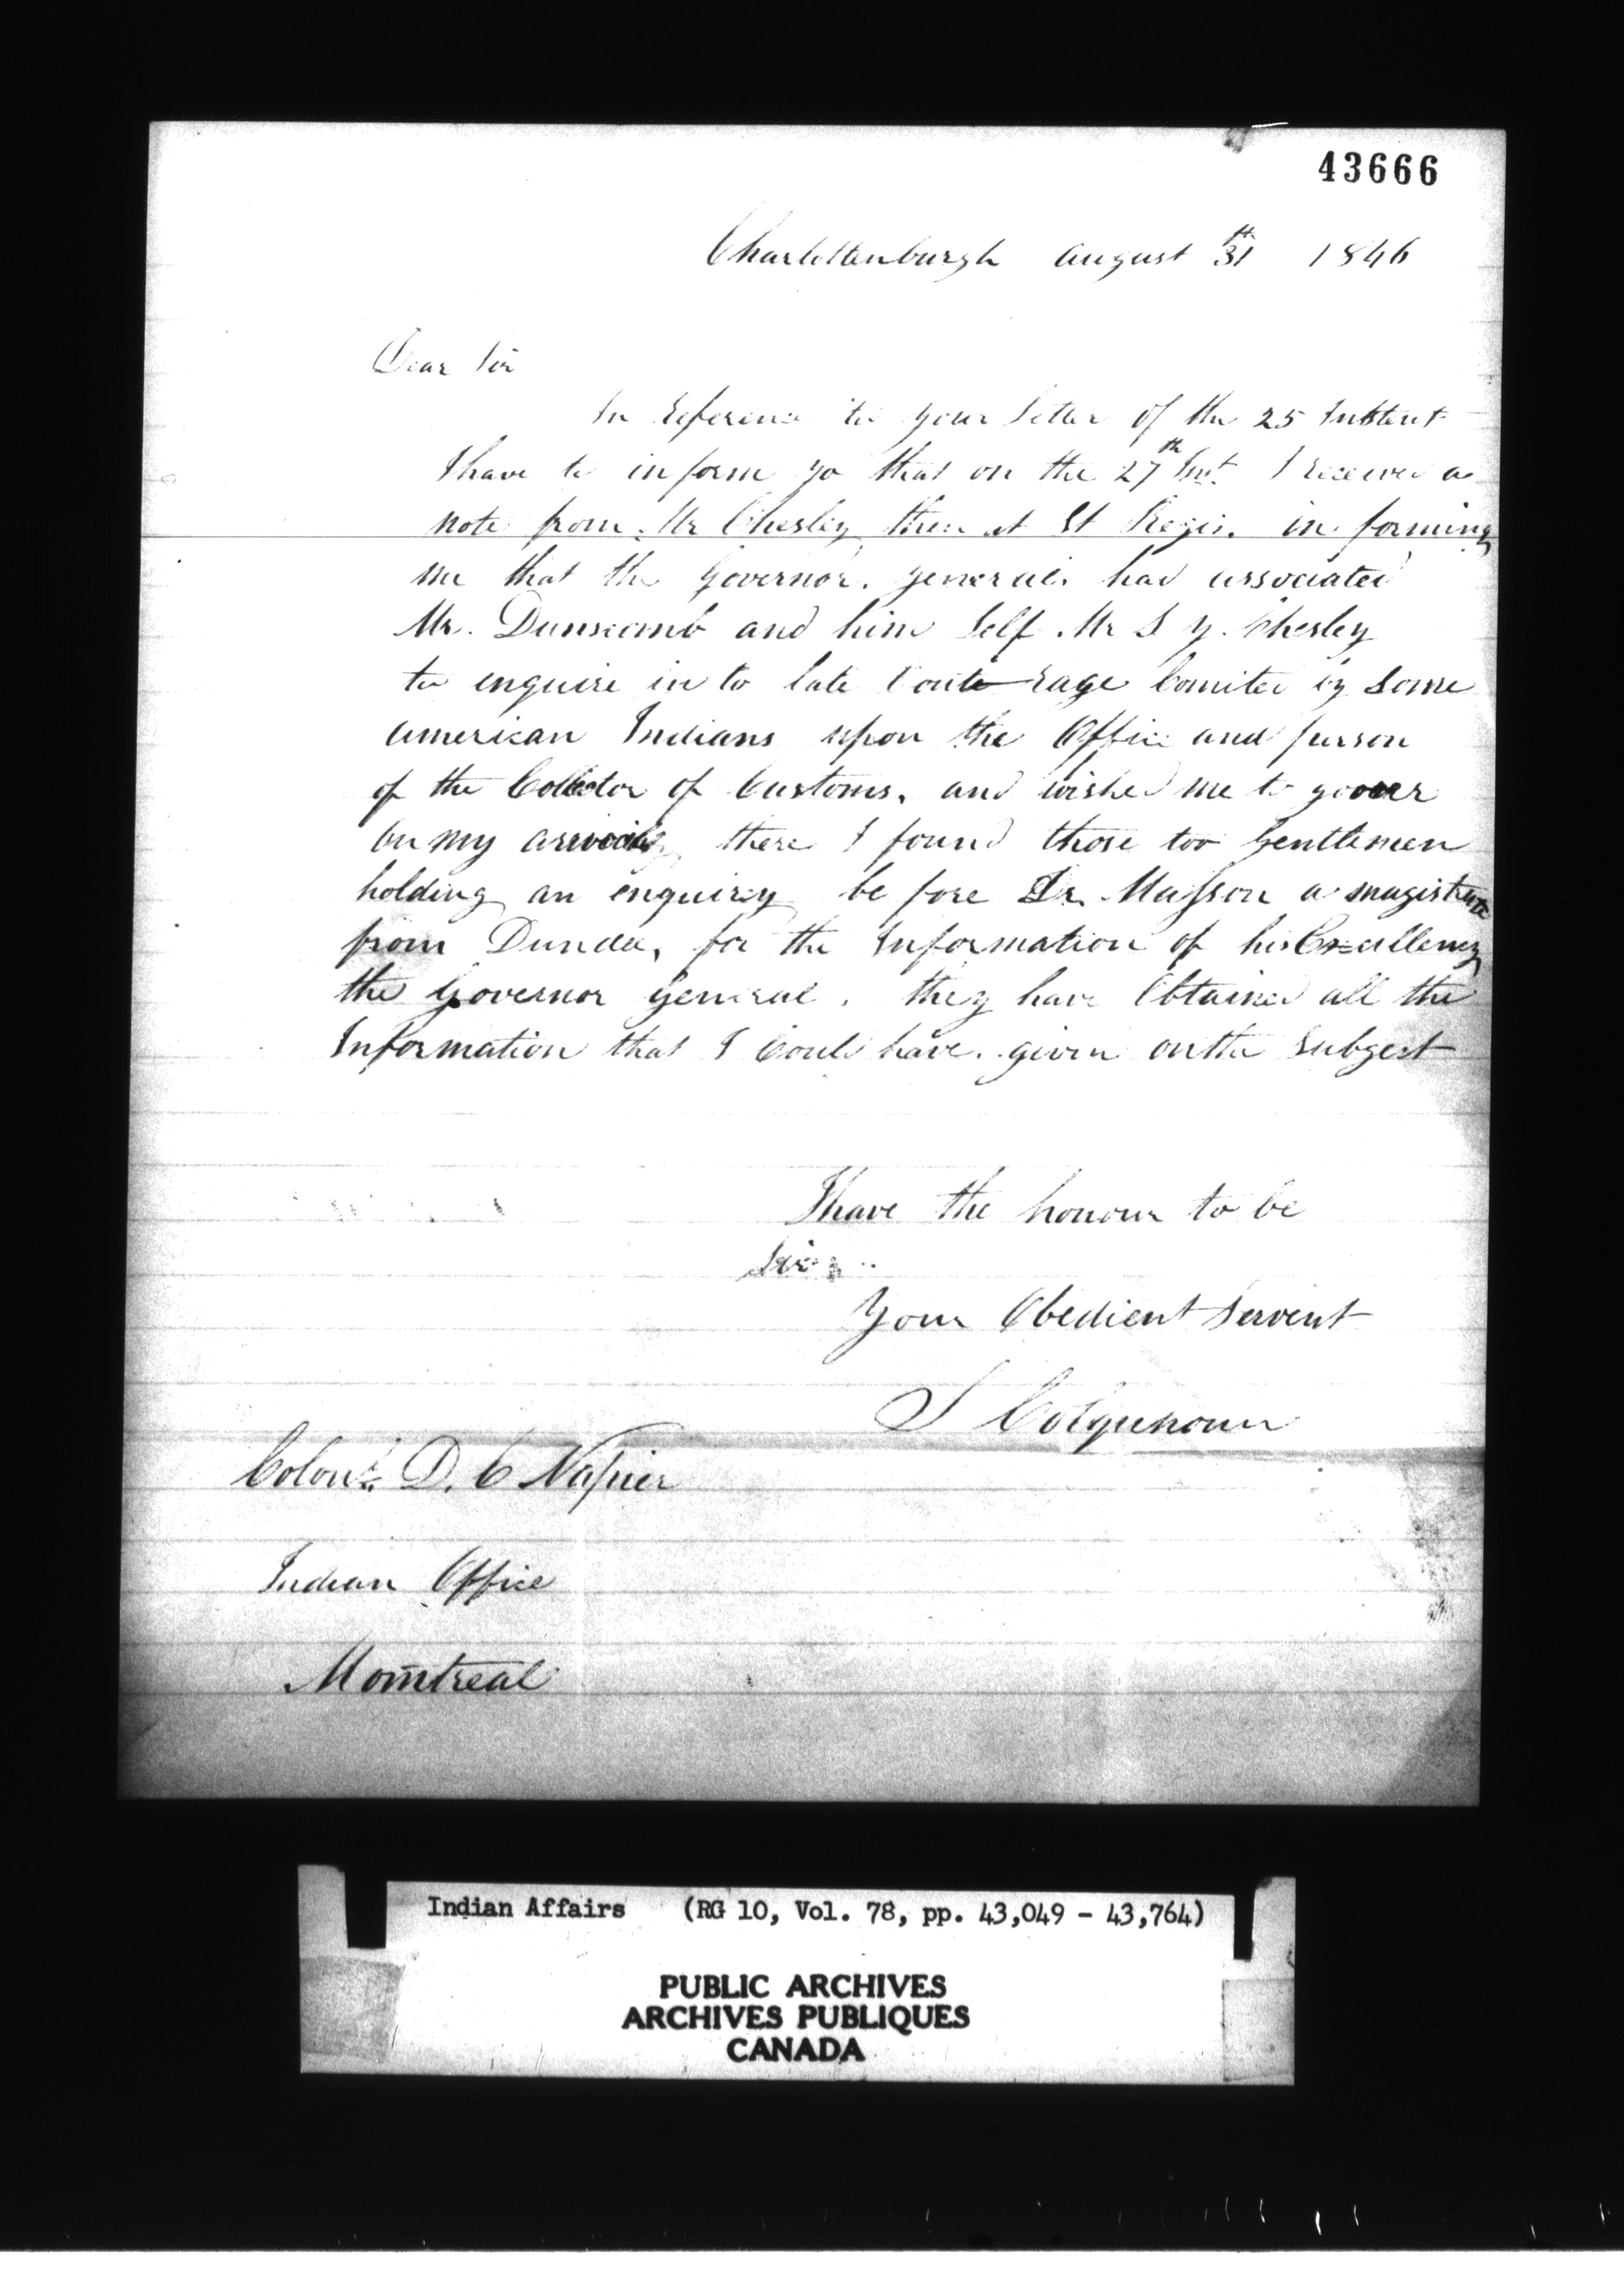 43666
Charlottenburgh august 31th 1846
Dear Sir
In Reference to your Letter of the 25 Instent
I have to in form yo that on the 27th Inst. I received a
note from Mr Chesley then at St Regis. in forming
me that the Governor. general. had associated
Mr. Dunscomb and him Self Mr S Y. Chesley
to enquire in to late Oute rage Comited by Some
american Indians upon the Office and purson
of the Collector of Customs, and wished me to go over
On my arrival there I found those too Gentlemen
holding an enquiry be fore Dr. Masson a magistrate
from Dundee, for the Information of his Excellency
the Governor general. they have Obtained all the
Information that I Could have given on the Subgect
I have the honour to be
Sir
Your Obedient Servent
S Colquhoun
Colonl. D. C Napier
Indian Office
Montreal
Indian Affairs (RG 10, Vol. 78, pp. 43,049 - 43,764)
PUBLIC ARCHIVES
ARCHIVES PUBLIQUES
CANADA